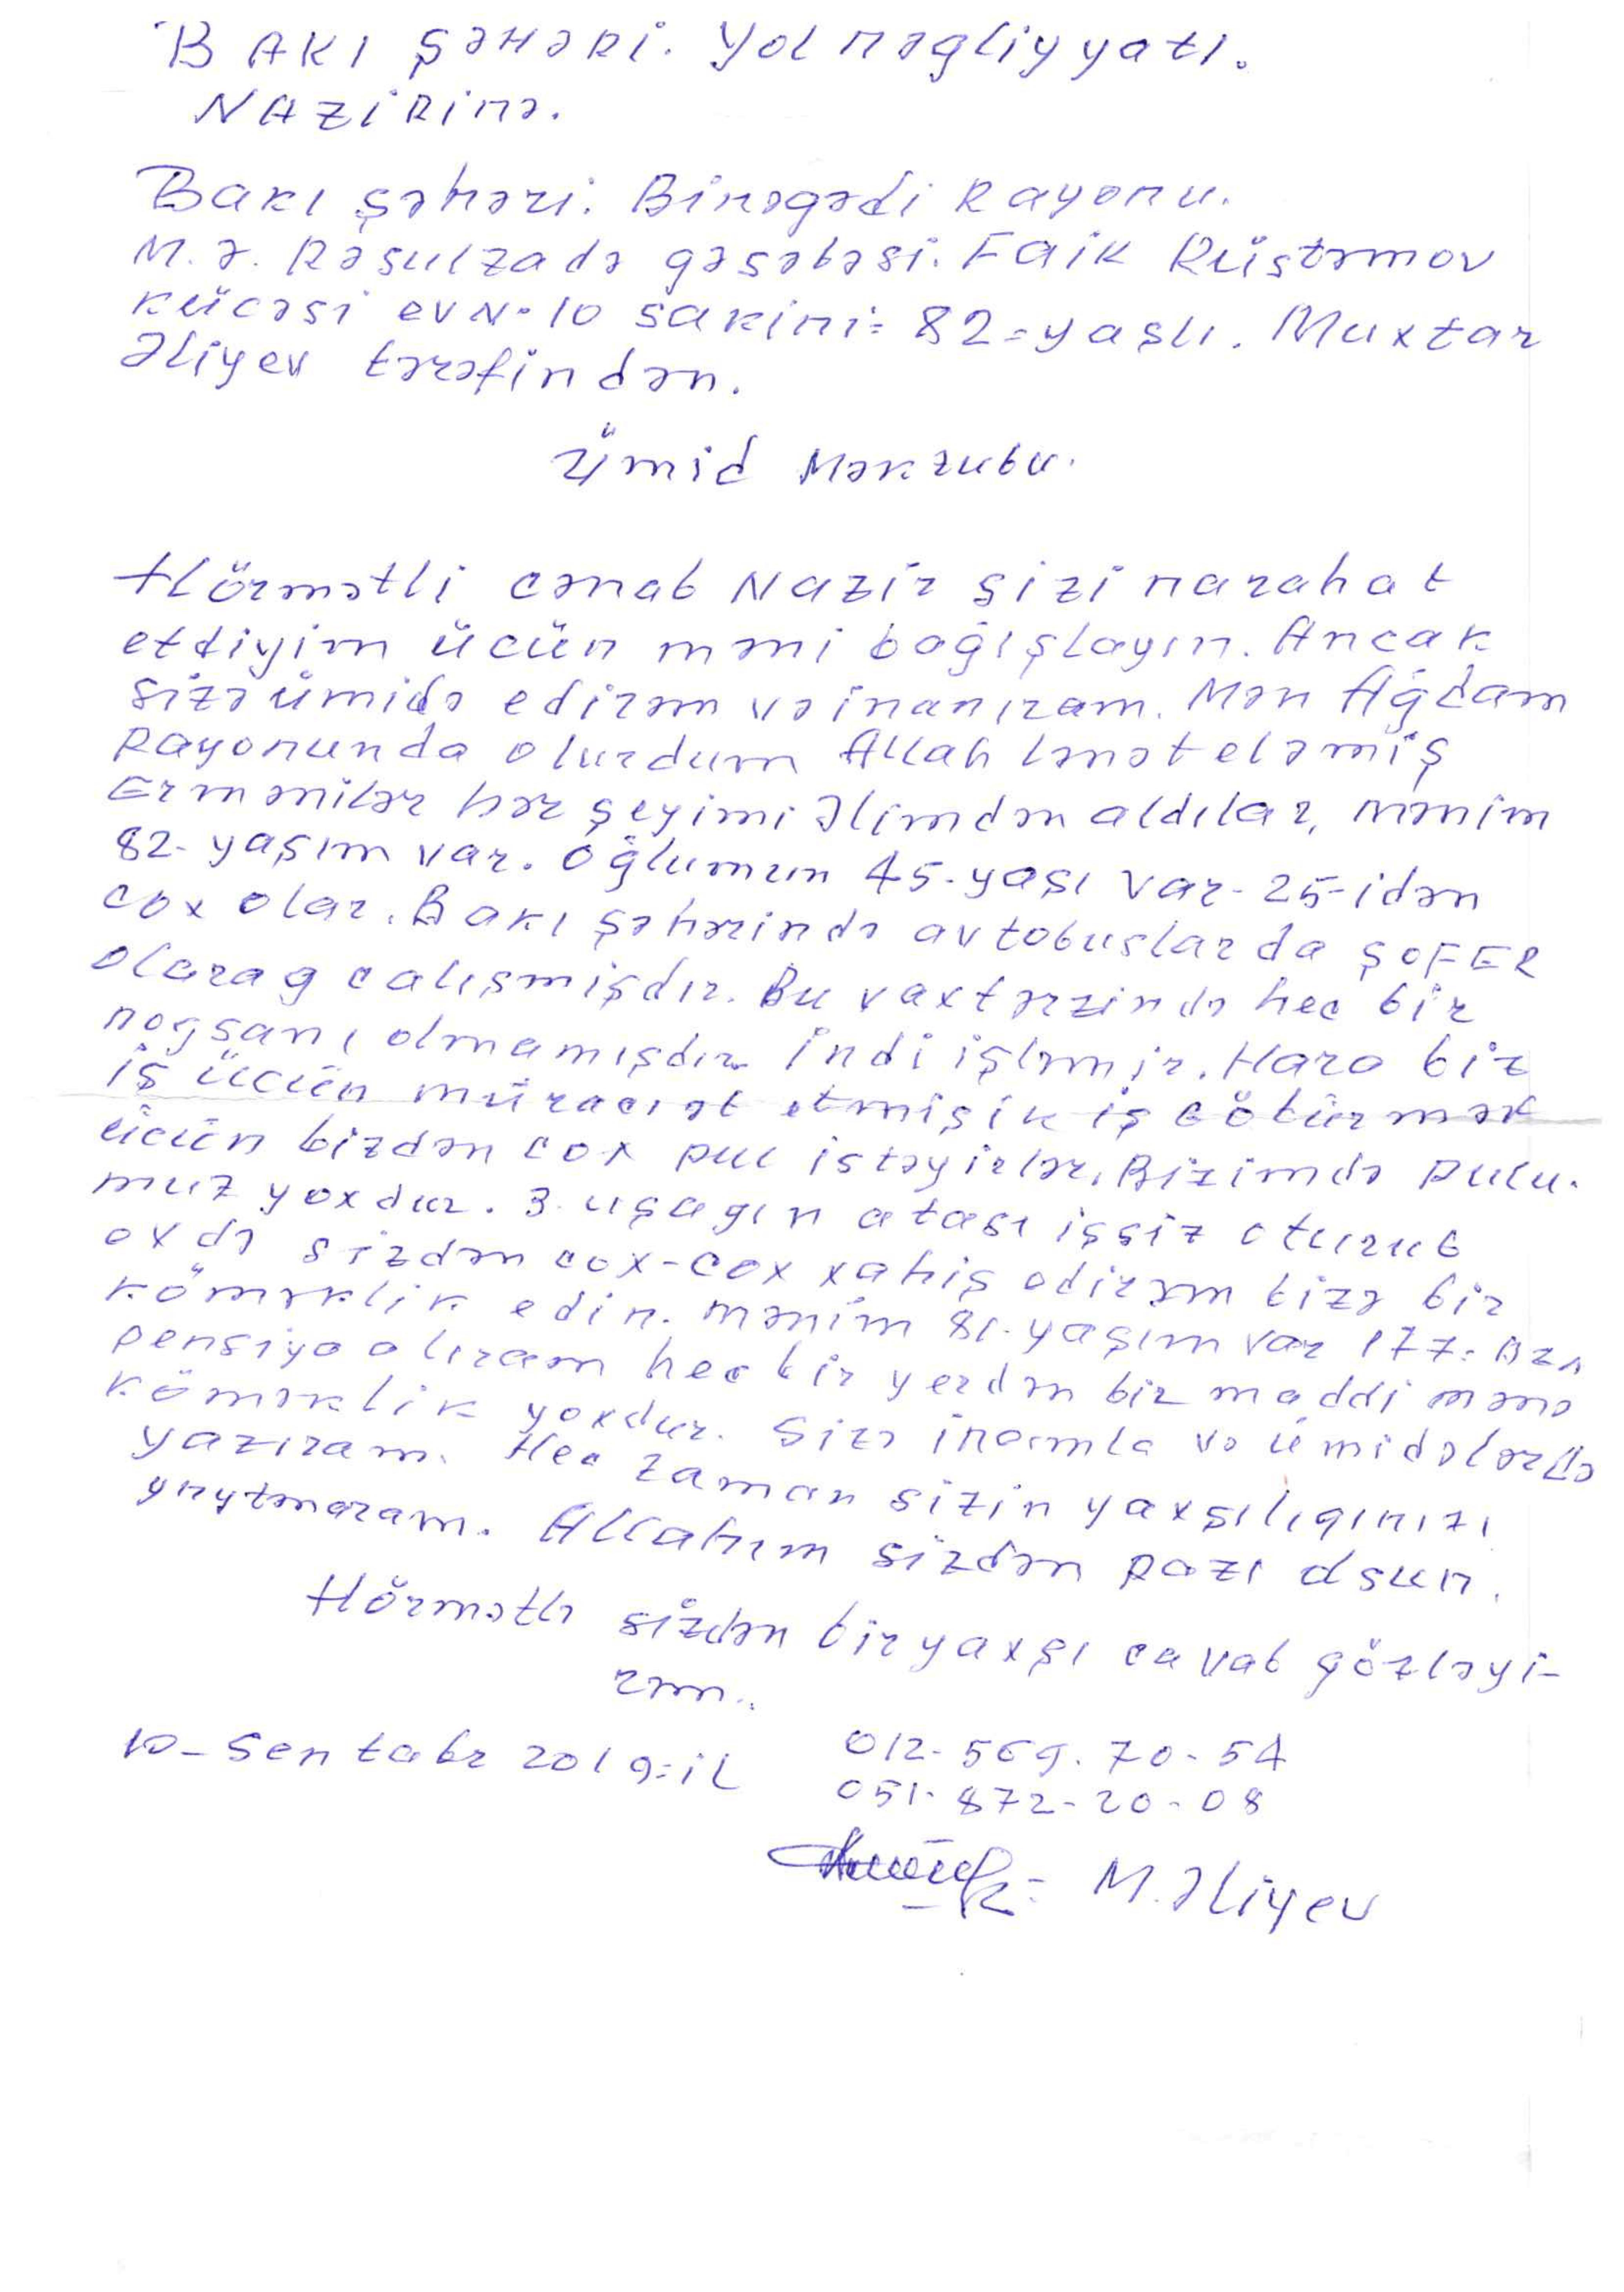 BAKI ŞƏHƏRİ. Yol nəgliyyatı.
NAZİRİNə.
Bakı şəhəri. Binəgədi Rayonu.
M.Ə. Rəsulzadə gəsəbəsi. Faik Rüstəmov
küicəsi ev N=10 sakini= 82=yaşlı. Muxtar
Əliyev tərəfindən.
Ümid Məkrubu.
Hörmətli cənab Nazir sizi narahat
etdiyim ücün məni bağışlayın. Ancak
sizə ümidə edirəm və inanıram. Mən Ağdam
Rayonunda olurdum Allah lənət eləmiş
Ermənilər hər şeyimi Əlimdən aldılar, mənim
82-yaşım var. Oğlumun 45-yaşı var-25-idən
cox olar. Bakı şəhərində avtobuslarda ŞOFER
olarag calışmişdır. Bu vaxtərzində hec bir
nogsanı olmamışdır indi işləmir. Hara biz
iş ücün müracıət etmişik iş Götürmək
ücün bizdən cox pul istəyirlər. Bizimdə pulu.
muz yoxdur. 3. uşagın atası işsiz oturub
ovdə sizdən cox-cox xahiş edirəm bizə bir
köməklik edin. mənim 81-yaşım var 177=AZN
pensiya alıram hec bir yerdən bir maddi mənə
köməklik yoxdur. Sizə inamla və ümidələrlə
yazıram. Hec zaman sizin yaxşılıqınızı
ynytmaram. Allahım sizdən Razı olsun.
Hörmətlə sizdən bir yaxşı cavab gözləyi-
rəm..
10-Sentabr 2019=il 012-569.70-54
051-872-20-08
M.Əliyev